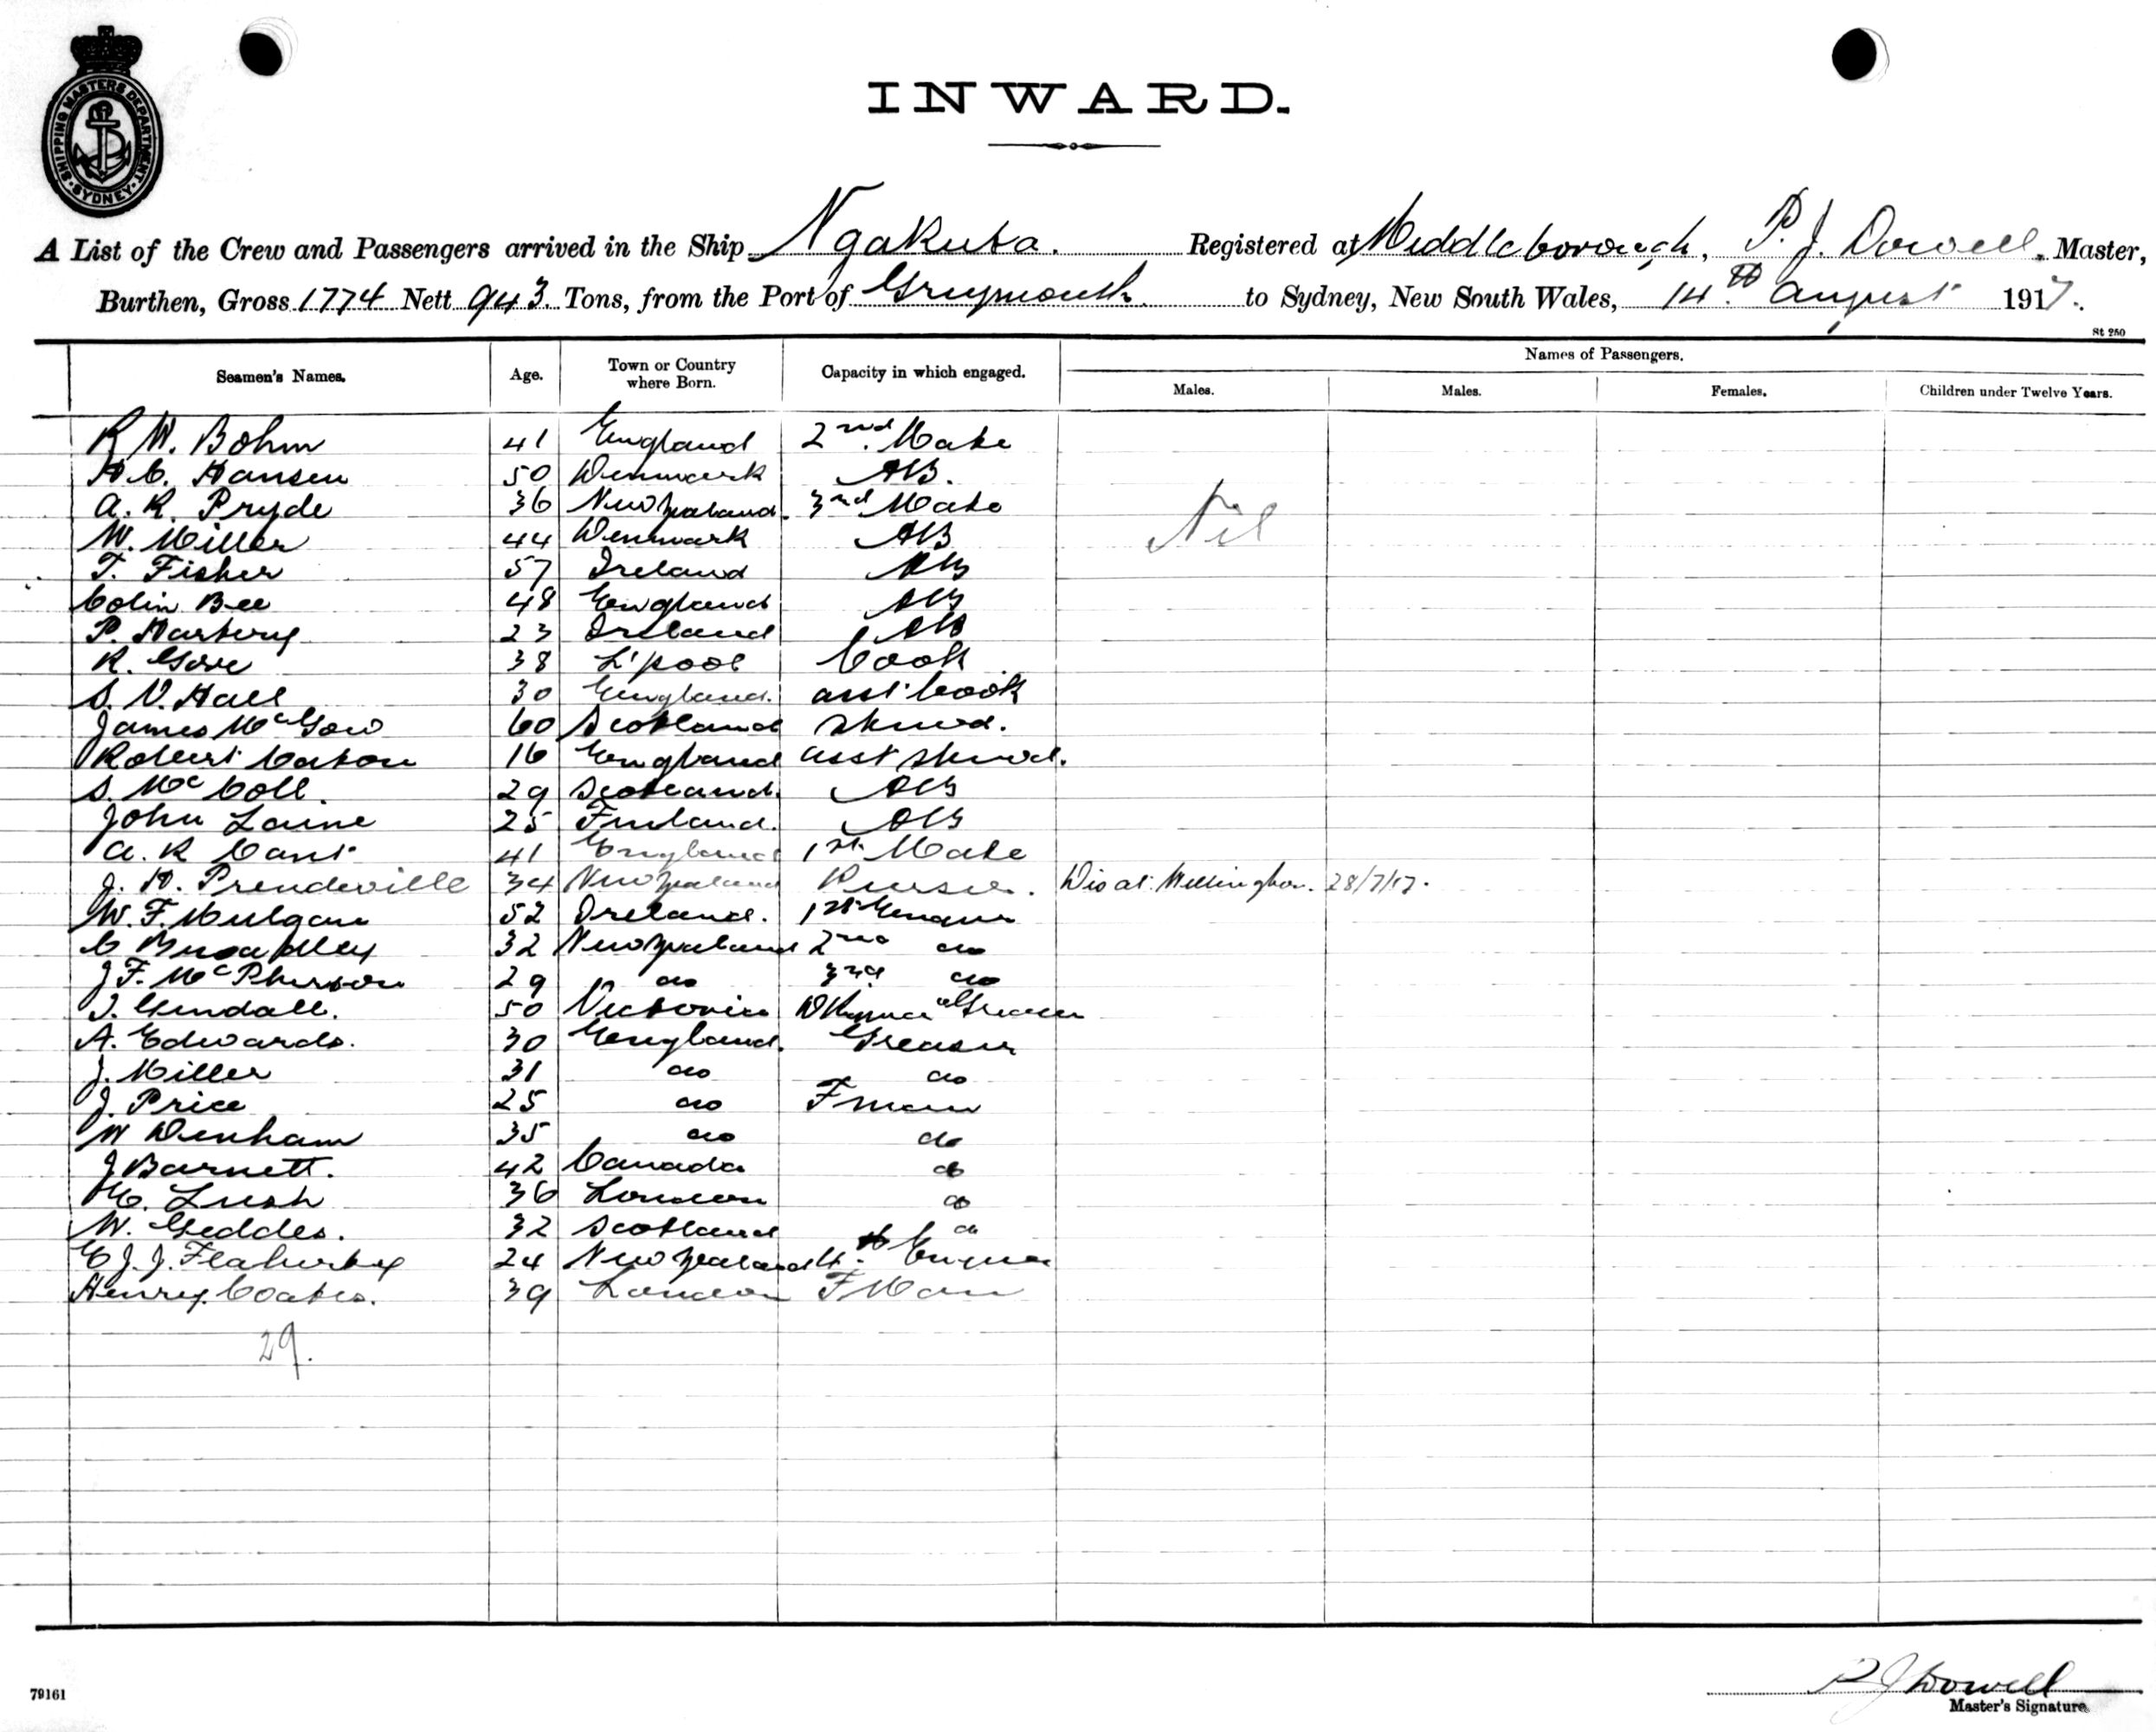 SHIPPING MASTERS DEPARTMENT
SYDNEY
INWARD.
A List of the Crew and Passengers arrived in the Ship Ngakuta. Registered at Middleborough, P. J. Dowell, Master,
Burthen, Gross 1774 Nett 943 Tons, from the Port of Greymouth to Sydney, New South Wales, 14th August 1917.
St 250
Seamen's Names. Age. Town or Country where Born. Capacity in which engaged. Names of Passengers.
Males. Males. Females. Children under Twelve Years.
R W. Bohm 41 England 2nd. Mate
H. C. Hansen 50 Denmark AB.
A. R. Pryde 36 New Zealand. 3rd Mate
Nil
W. Miller 44 Denmark AB
T. Fisher 57 Ireland AB
Colin Bee 48 England AB
P. 23 Ireland AB
R. Gore 38 L'pool Cook
S. V. Hall 30 England. asst Cook
James McGow 60 Scotland Stewd.
Robert Caton 16 England asst Stewd.
S. McColl. 29 Scotland. AB
John Laine 25 Finland. AB
A. R Cant 41 England 1st. Mate
J. H. Prendeville 34 New Zealand Purser. Dis at Wellington. 28/7/17.
W. F. Mulgan 52 Ireland. 1st Engineer
C Broadley 32 New Zealand 2nd do
J F. McPherson 29 do 3rd do
J. Gendall. 50 Victoria Dkyman & Greaser
A. Edwards. 30 England. Greaser
J. Miller 31 do do
J. Price 25 do Fman
W Denham 35 do do
J Barnett. 42 Canada do
C. Lush 36 London do
W. Geddes. 32 Scotland do
C J. J. Flaherty 24 New Zealand 4th Engineer
Henry Coates. 39 London F Man
29.
79161
P J Dowell
Master's Signature